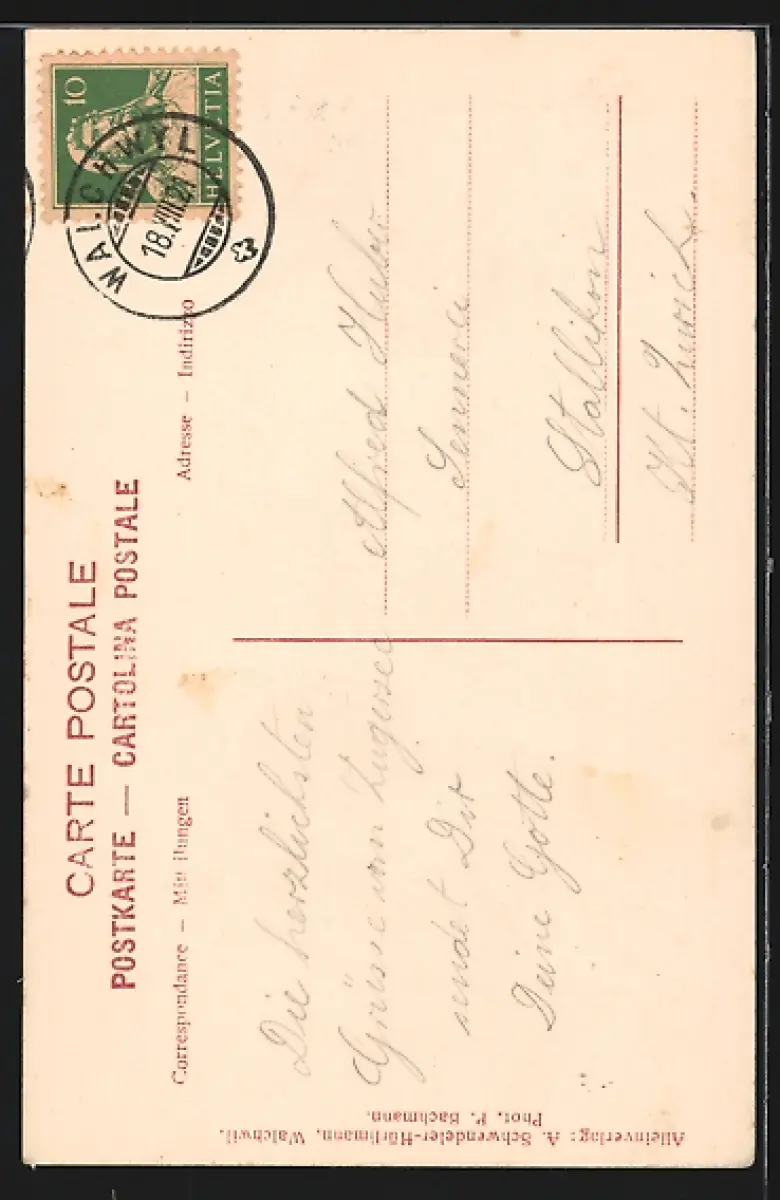 CARTE POSTALE
POSTKARTE — CARTOLINA POSTALE
Correspondance – Mitteilungen
Adresse – Indirizzo
10
HELVETIA
WALCHWYL
18.VIII.21
Die herzlichsten
Grüsse vom Zugersee
sendet Dir
Deine Gotte.
Alfred Huber
Sennerei
Stallikon
Kt. Zürich
Alleinverlag: A. Schwendeler-Hürlimann, Walchwil.
Phot. P. Bachmann.